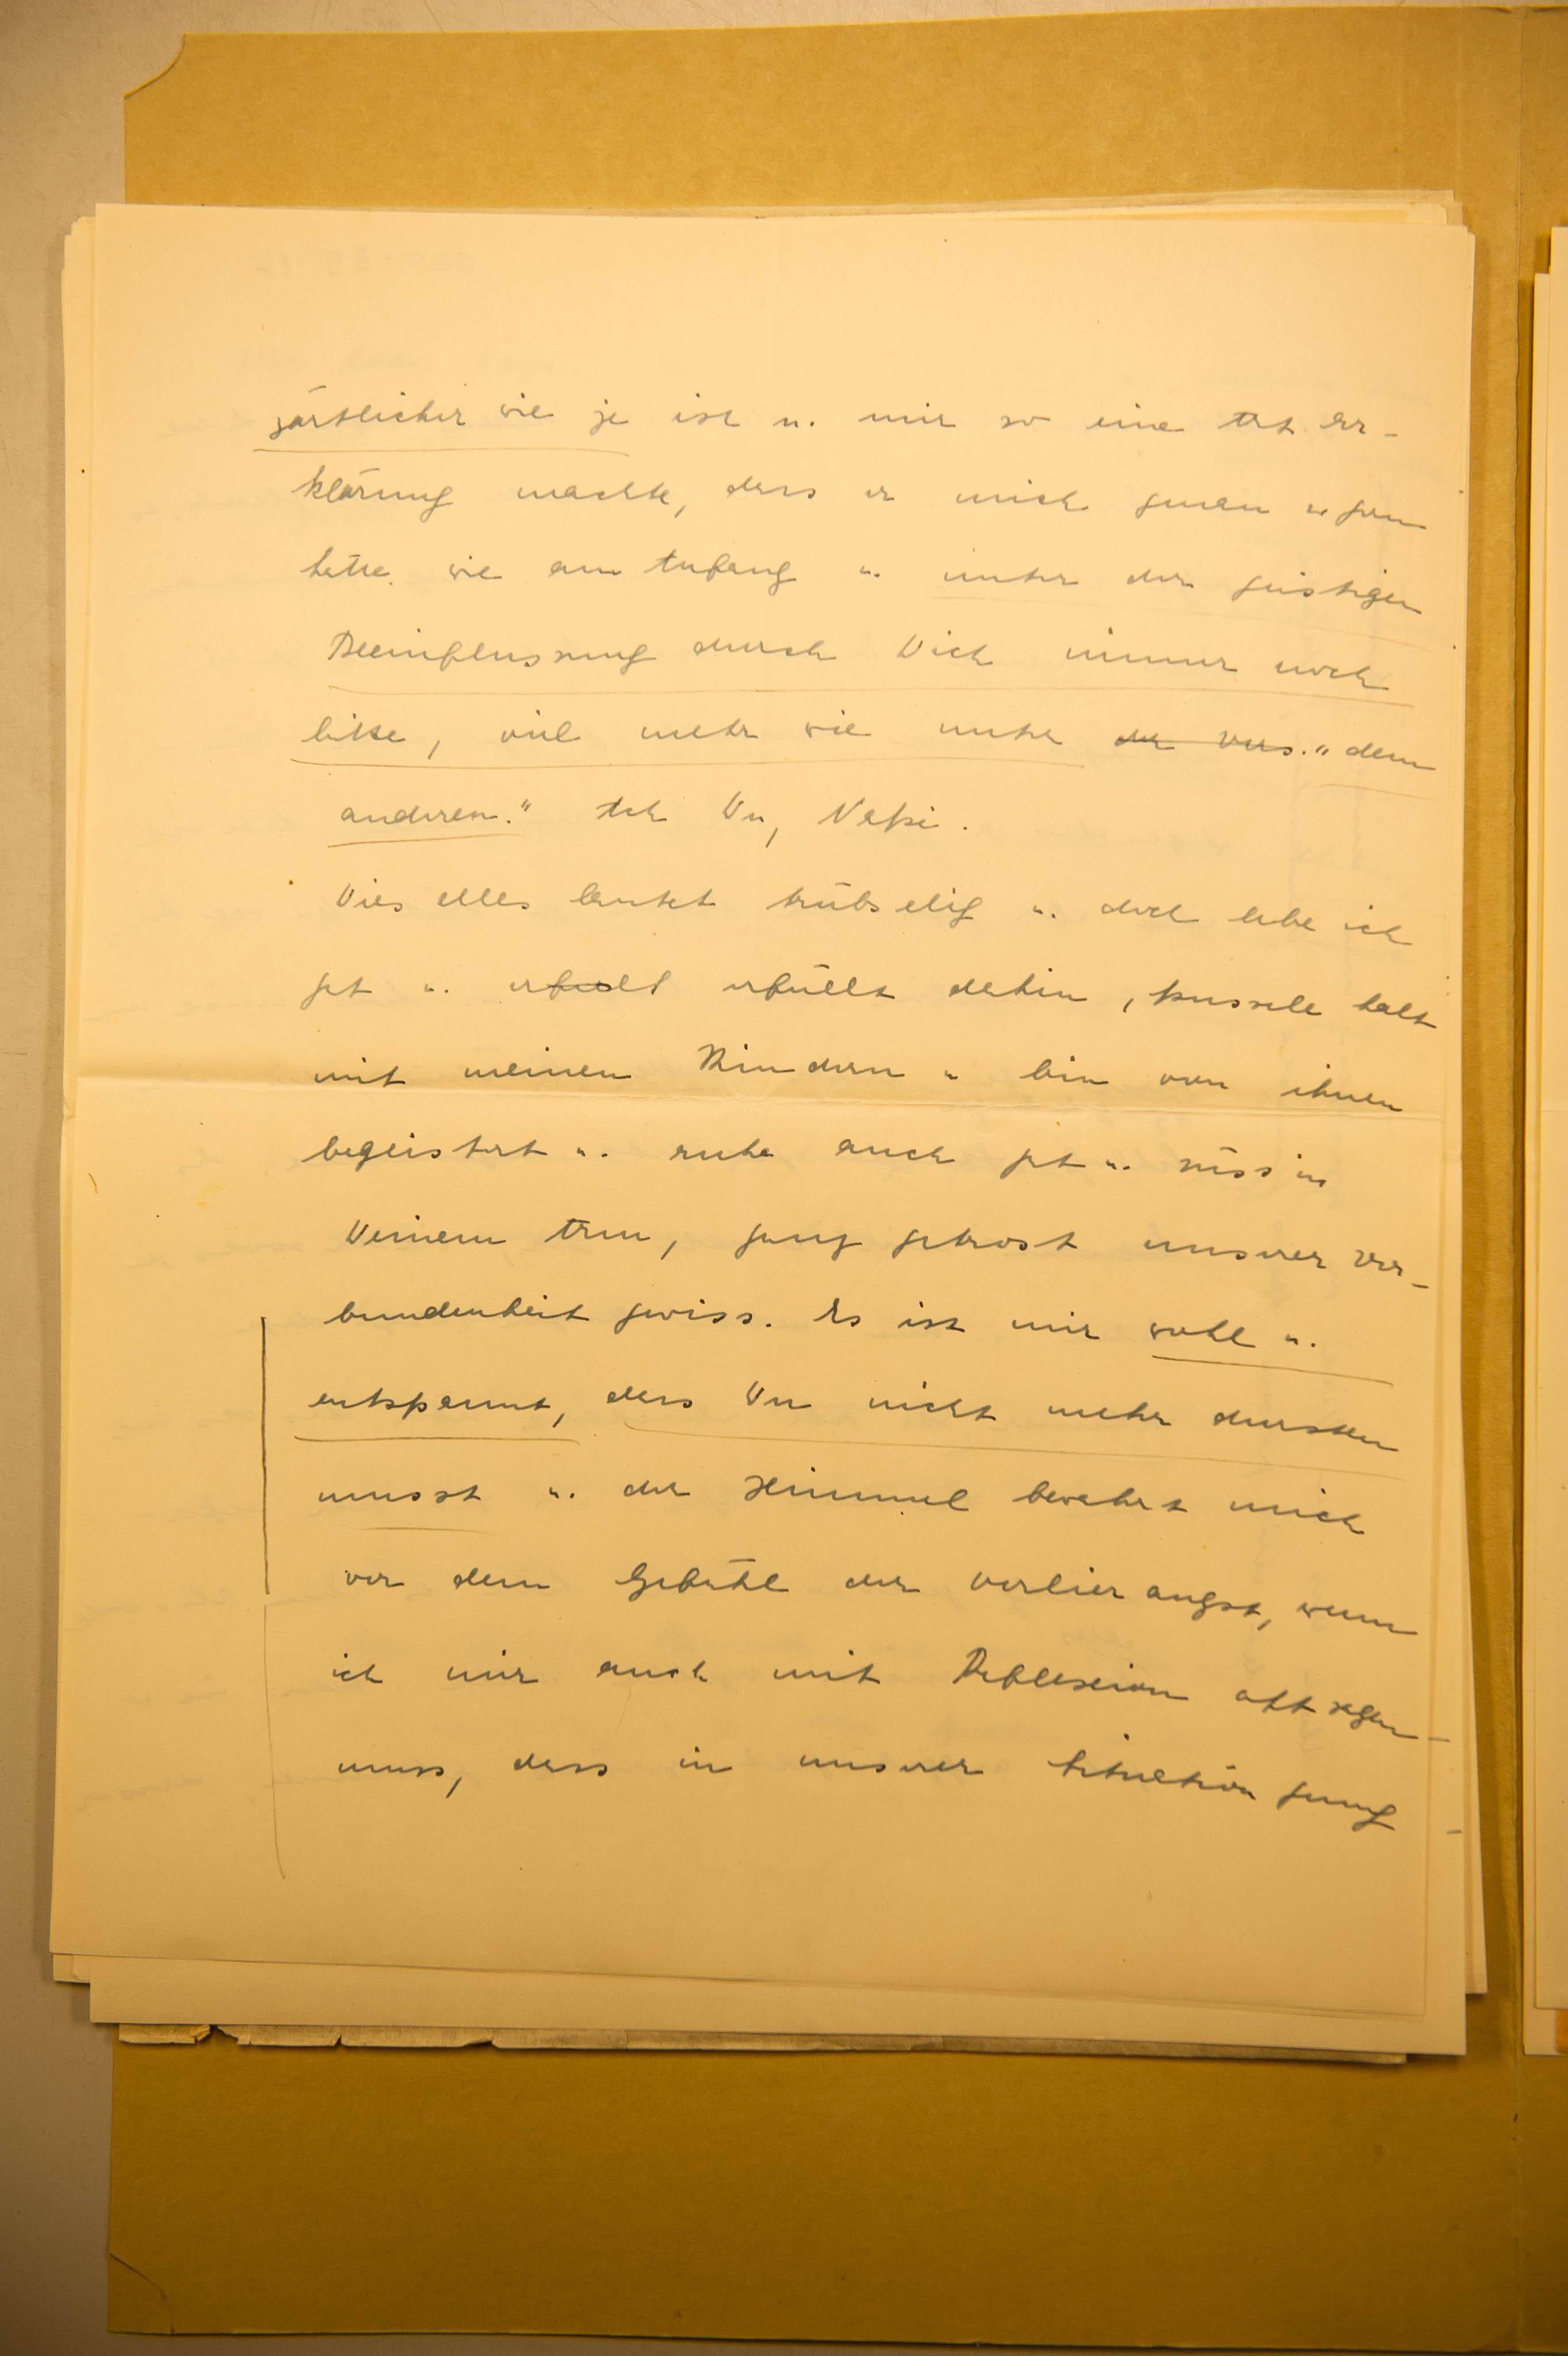 zärtlicher wie je ist u. mir so eine Art Er-
klärung machte, dass er mich genau so gern
hätte wie am Anfang u. unter der geistigen
Beeinflussung durch Dich immer noch
litte, viel mehr wie unter der Vers. "dem
anderen." Ach Du,
Dies alles lautet trübselig u. doch lebe ich
gut u. erfüllt erfüllt dahin, halt
mit meinen Kindern u bin von ihnen
begeistert u. ruhe auch gut u. süss in
Deinem Arm, ganz getrost unserer Ver-
bundenheit gewiss. Es ist mir wohl u.
entspannt, dass Du nicht mehr dursten
musst u. der Himmel bewahrt mich
vor dem Gefühl der Verlierangst, wenn
ich mir auch mit Reflexion oft sagen
muss, dass in unserer Situation genug